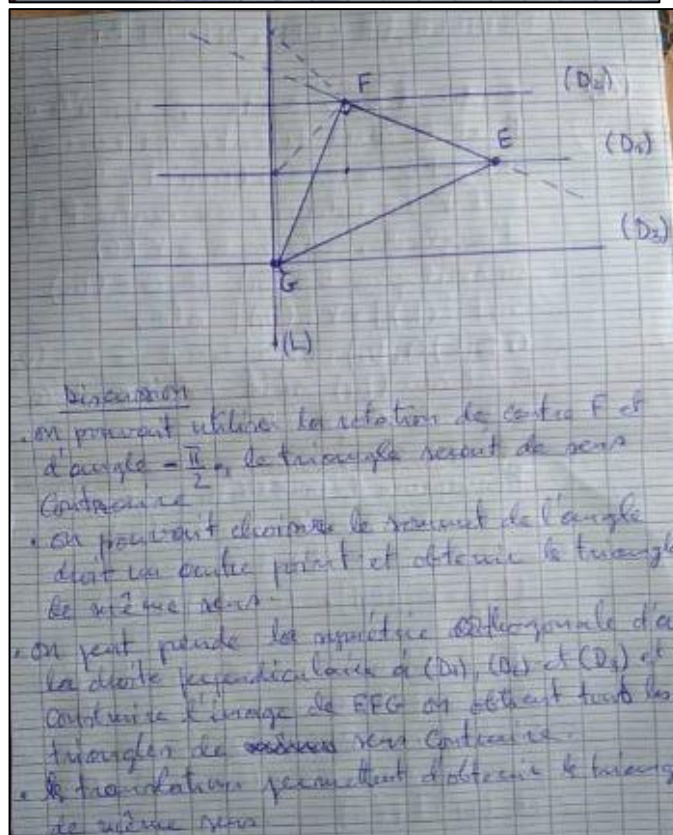 F
(D₂)
E
(D₁)
(D₃)
G
(L)
Discussion
. on pouvait utiliser la rotation de centre F et
d'angle - π/2, le triangle serait de sens
Contraire
. on pouvait choisir le sommet de l'angle
droit un autre point et obtenir le triangle
de même sens.
. on peut prendre la symétrie orthogonale d'a
la droite perpendiculaire à (D₁), (D₂) et (D₃) et
construire l'image de EFG on obtient tous les
triangles de sens contraire.
. translations permettent d'obtenir le triang
de même sens